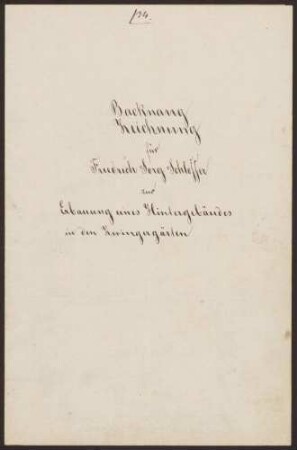 134.
Backnang
Zeichnung
für
Friedrich Sorg Schlosser
zur
Erbauung eines Hintergebäudes
in den Zwingergärten